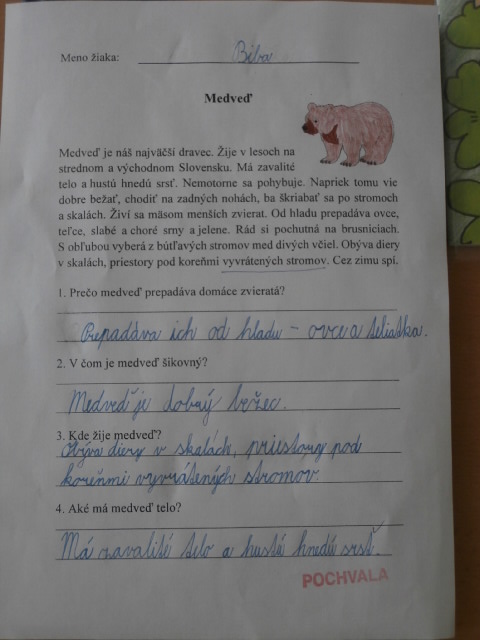 Meno žiaka: Biba
Medveď
Medveď je náš najväčší dravec. Žije v lesoch na
strednom a východnom Slovensku. Má zavalité
telo a hustú hnedú srsť. Nemotorne sa pohybuje. Napriek tomu vie
dobre bežať, chodiť na zadných nohách, ba škriabať sa po stromoch
a skalách. Živí sa mäsom menších zvierat. Od hladu prepadáva ovce,
teľce, slabé a choré srny a jelene. Rád si pochutná na brusniciach.
S obľubou vyberá z búťľavých stromov med divých včiel. Obýva diery
v skalách, priestory pod koreňmi vyvrátených stromov. Cez zimu spí.
1. Prečo medveď prepadáva domáce zvieratá?
Prepadáva ich od hladu - ovce a teliatka.
2. V čom je medveď šikovný?
Medveď je dobrý bežec.
3. Kde žije medveď?
Obýva diery v skalách, priestory pod
koreňmi vyvrátených stromov.
4. Aké má medveď telo?
Má zavalité telo a hustú hnedú srsť.
POCHVALA